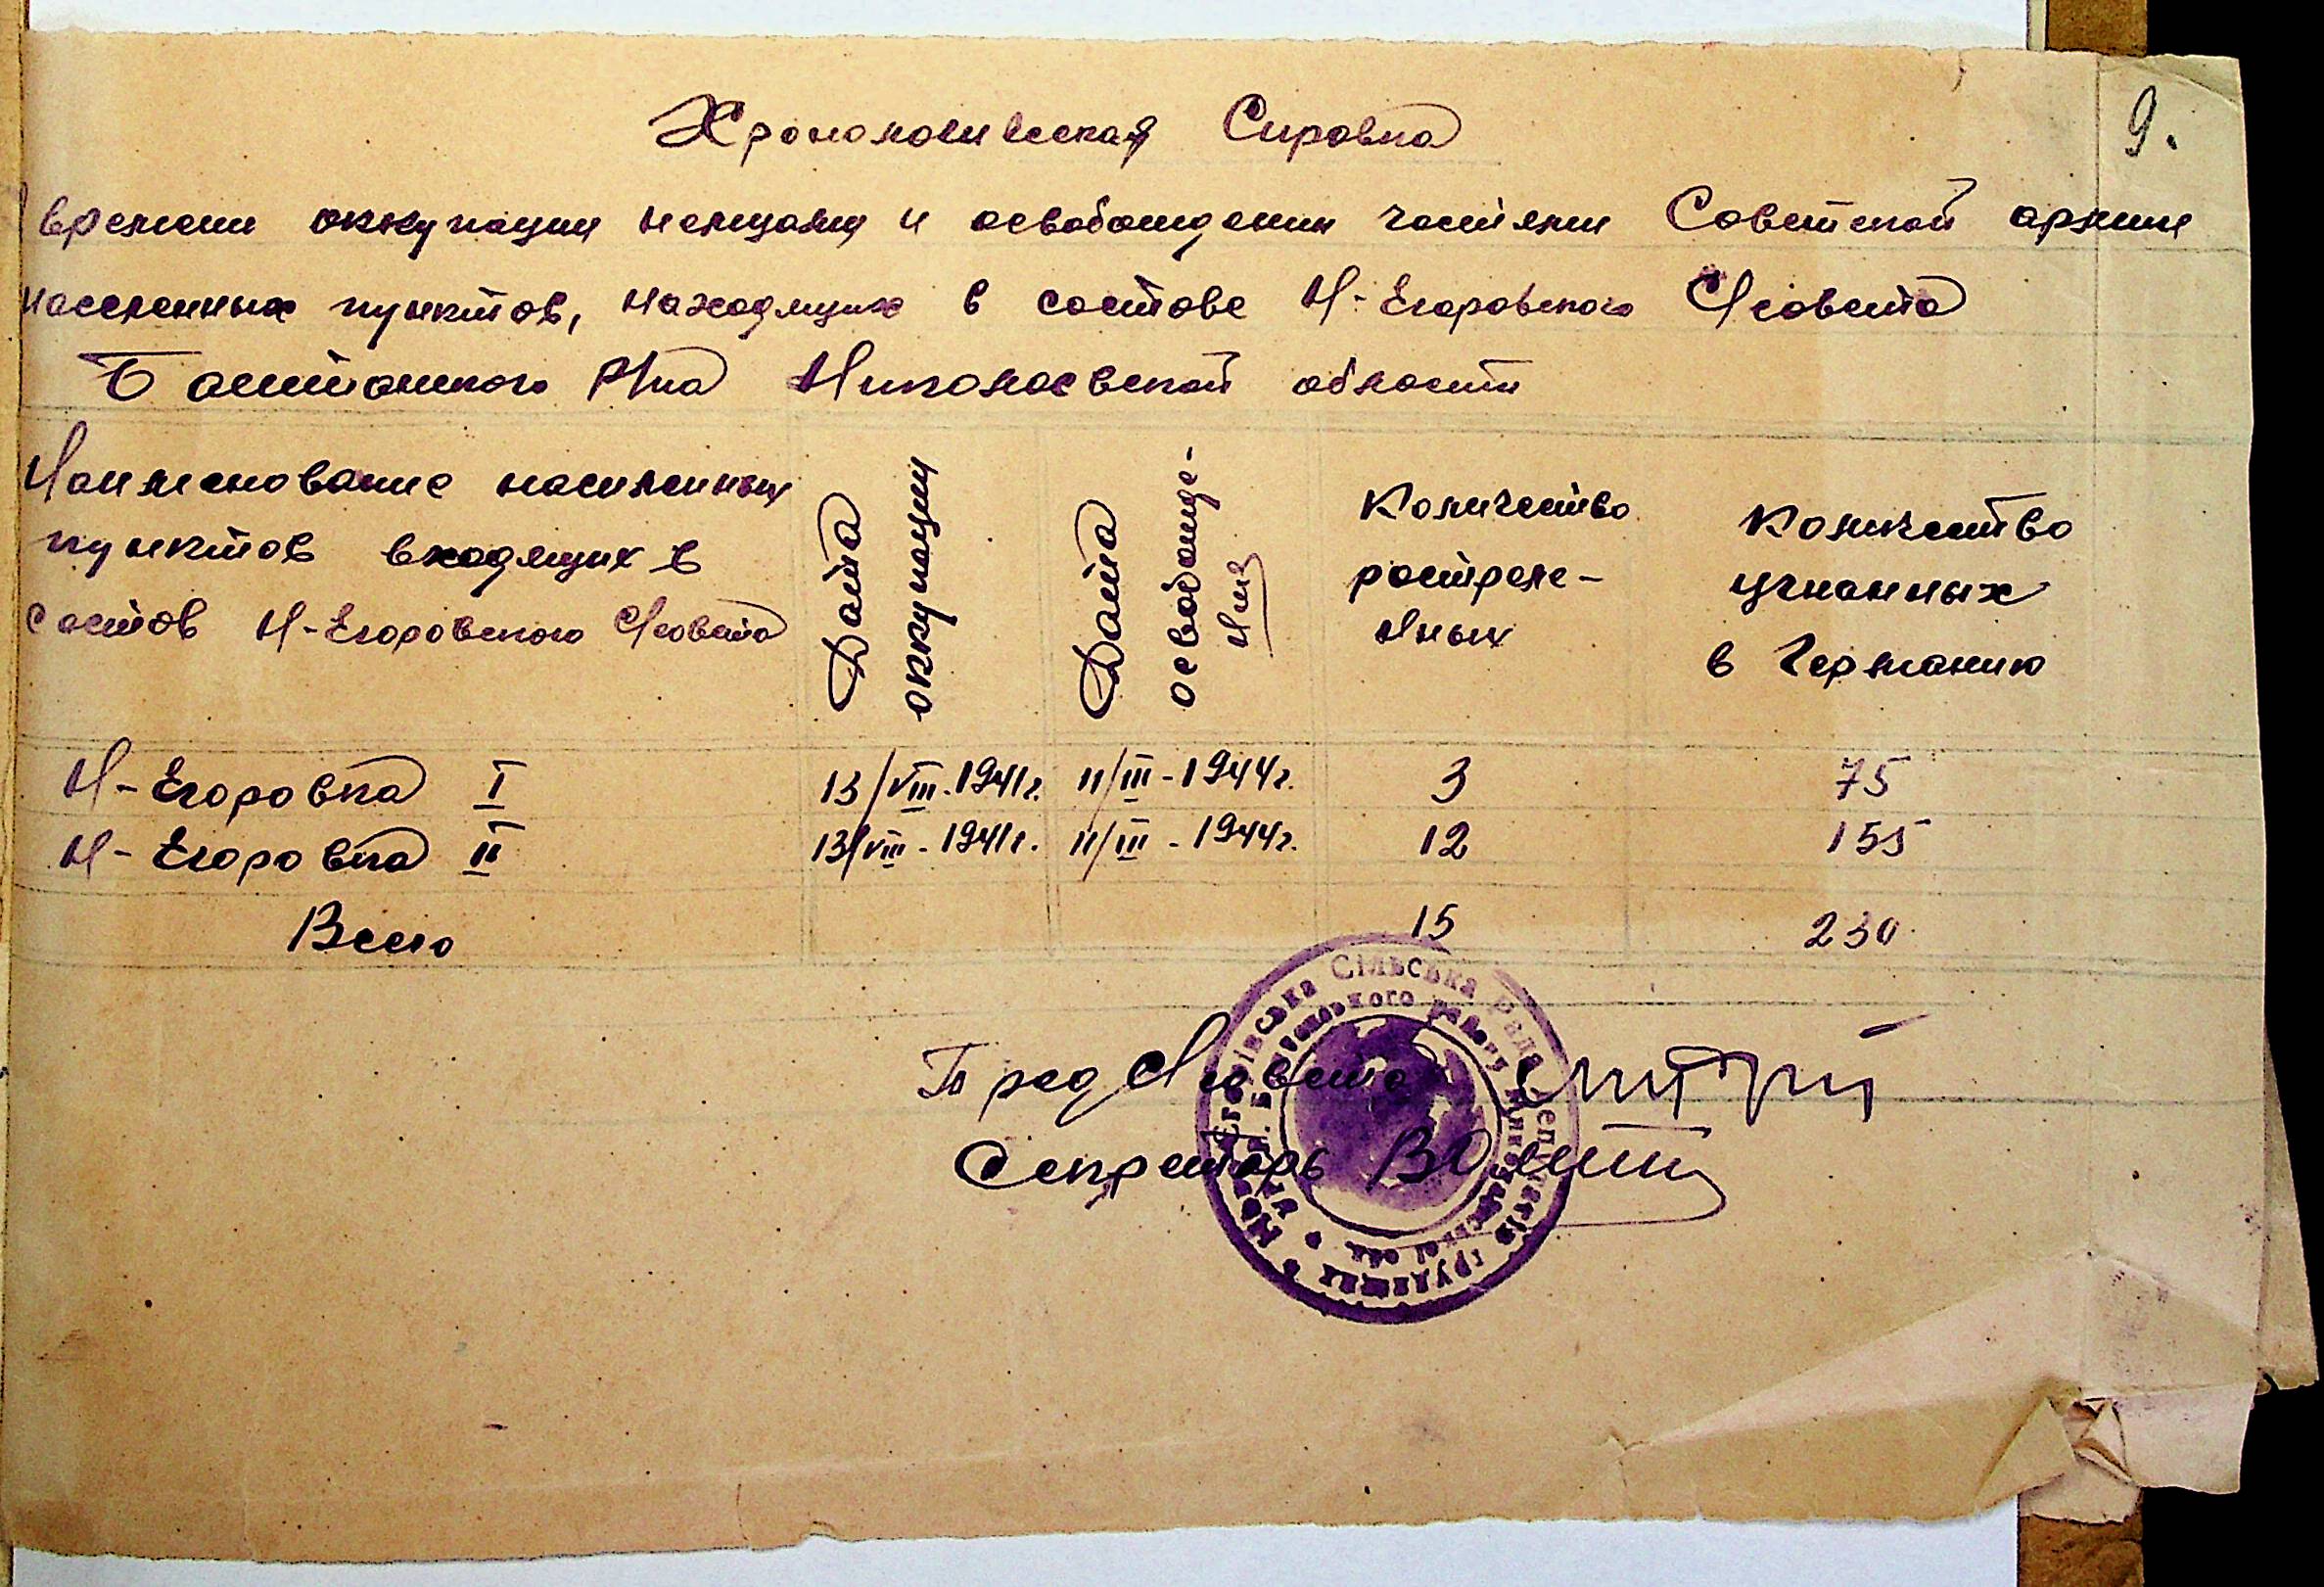 9.
Хронологическая Справка
времени оккупации немцами и освобождении частями Советской армии
населенных пунктов, находящихся в составе Н-Егоровского С/совета
Баштанского Р/на Николаевской области
Наименование населенных
пунктов входящих в
состов Н-Егоровского С/совета
Дата
оккупации
Дата
освобожде-
ния
Количество
растреле-
нных
Количество
угнанных
в Германию
Н-Егоровка I 13/VIII-1941г. 11/III-1944г. 3 75
Н-Егоровка II 13/VIII-1941г. 11/III-1944г. 12 155
Всего 15 230
Пред С/совета
Секретарь
Сільська Рада депутатів трудящих
Баштанського району Миколаївської обл.